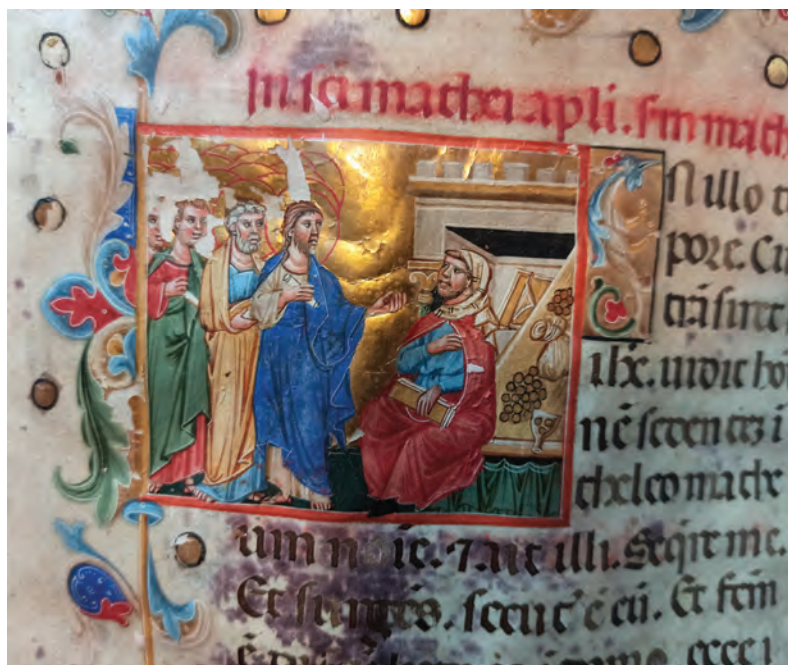 In. sci mathei apli. sm math
In illo t
pore. Cu
trāsiret
ihc. uidit ho
nē sedentez i
theloneo mathe
um noīe. 7 ait illi. Seqre me.
Et surgēs. secut' ē eū. Et fcm